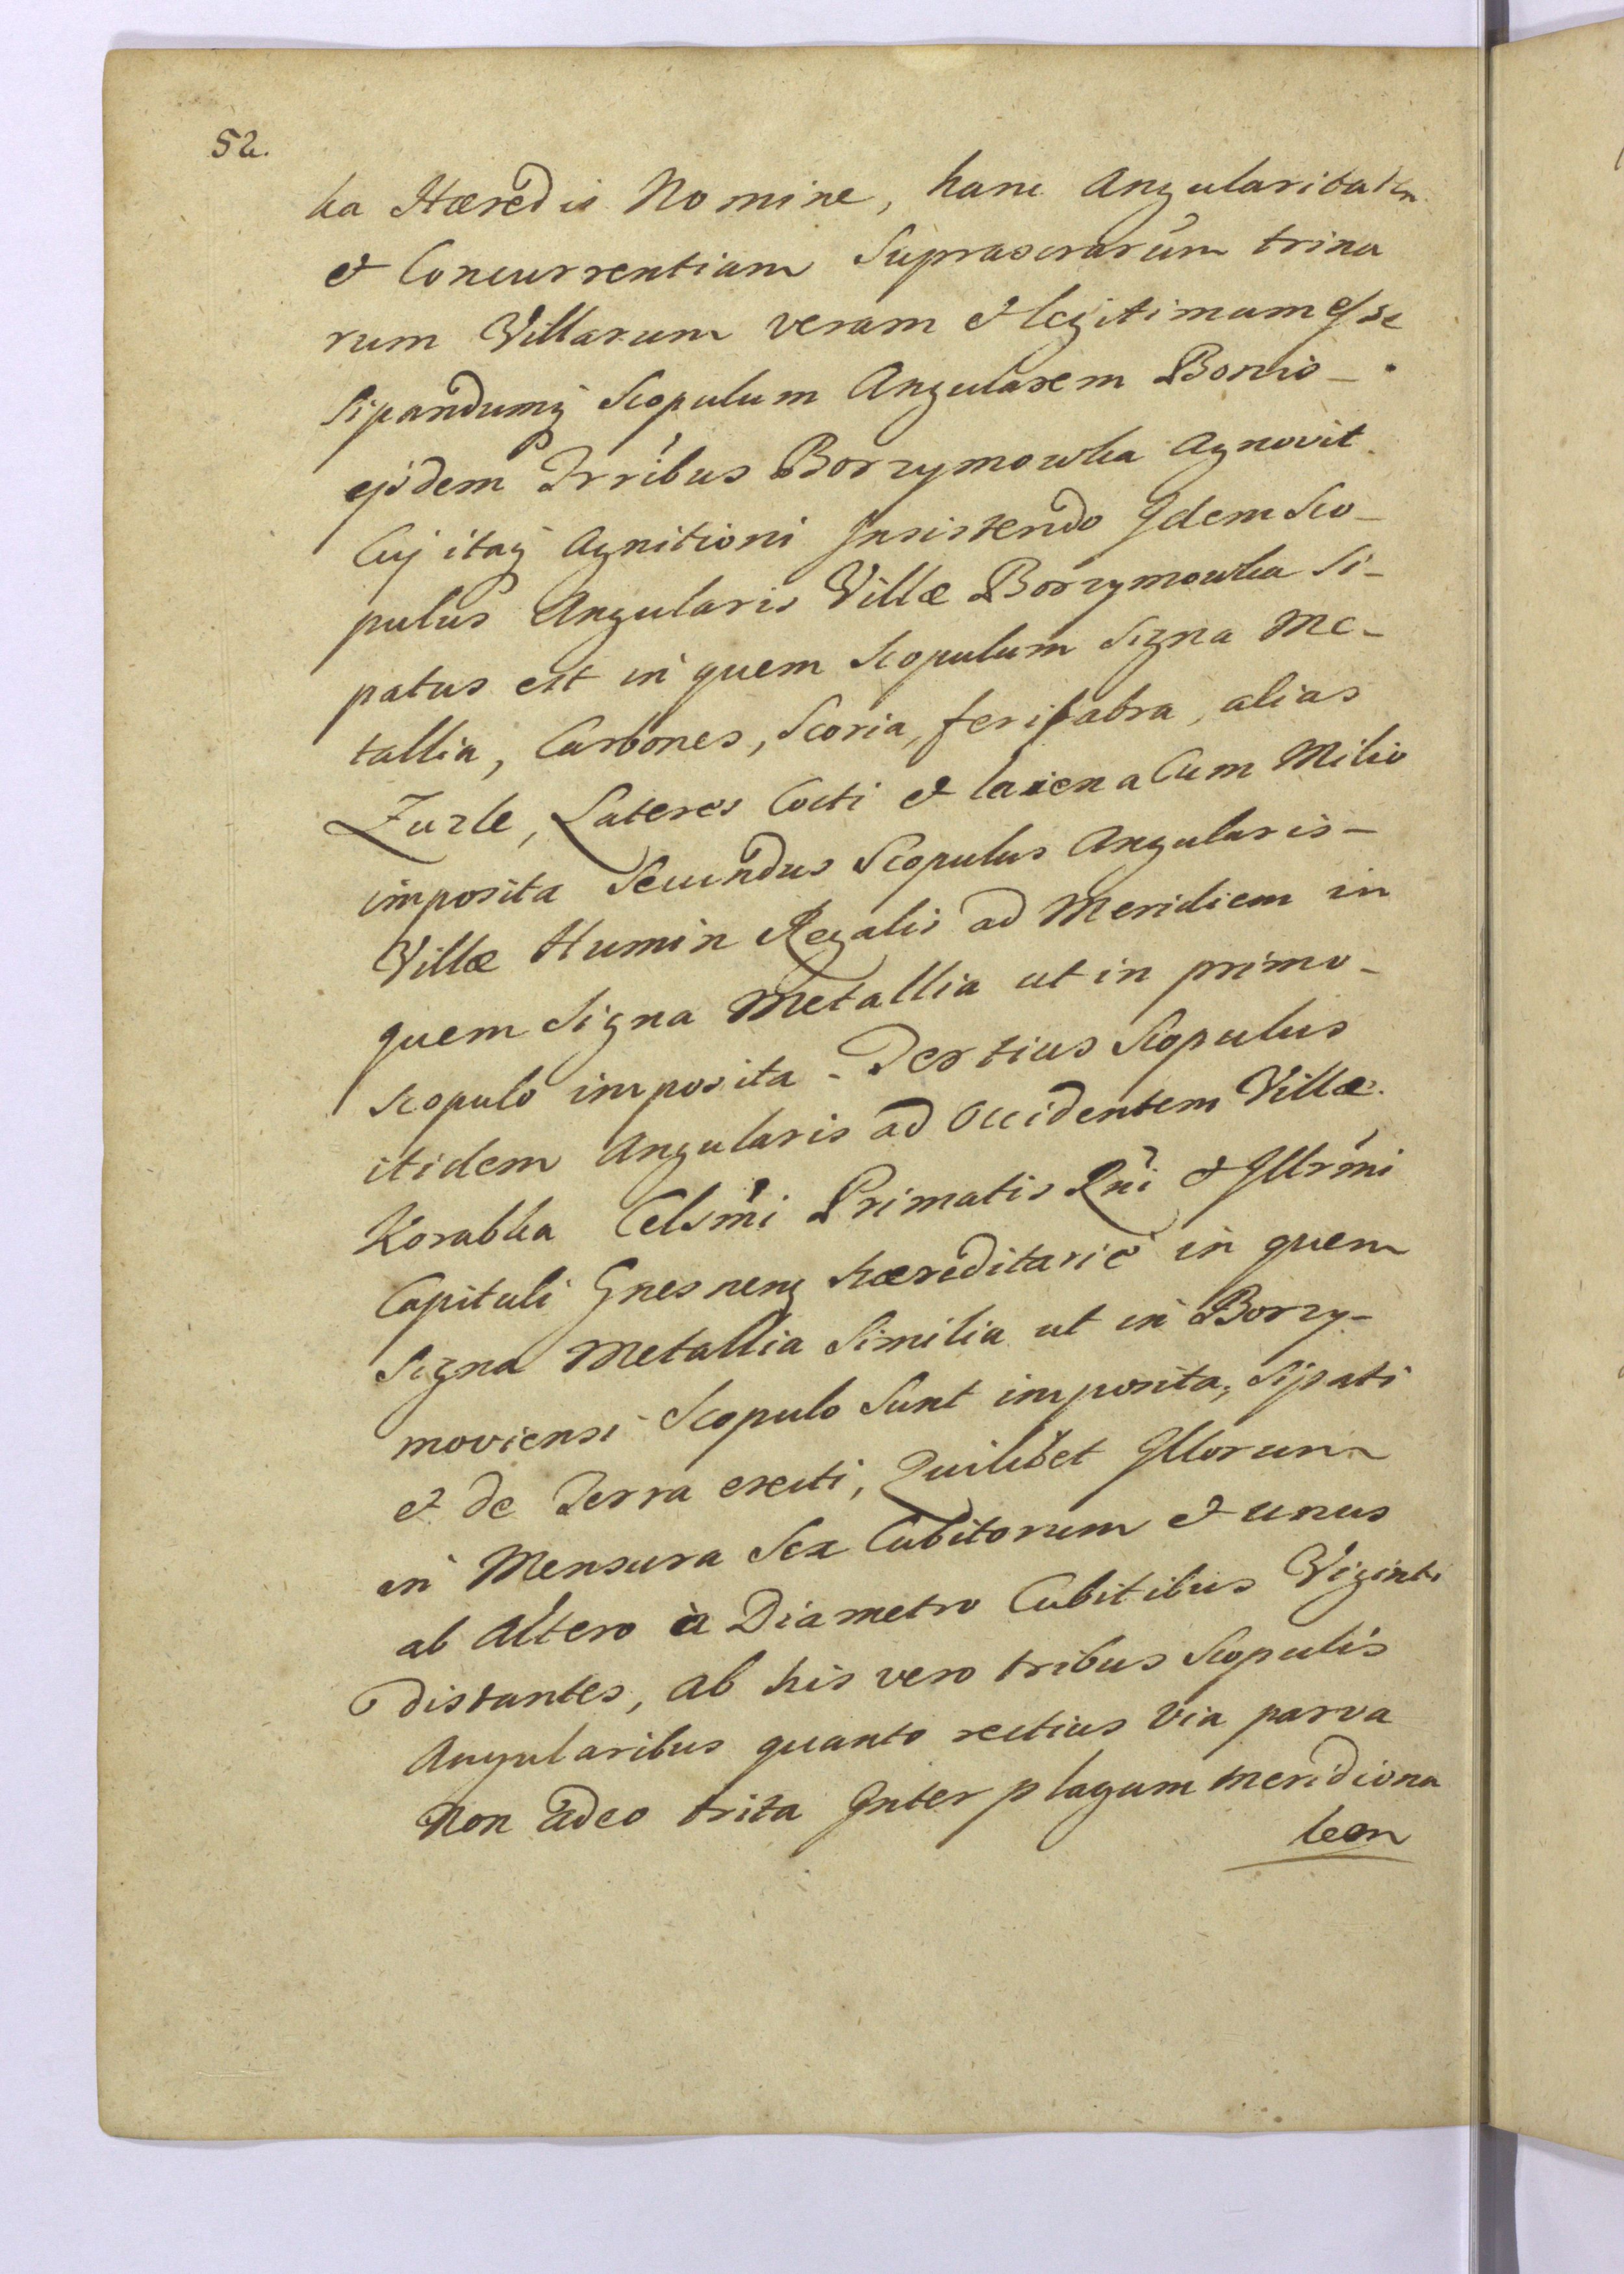 52.
ka Hæredis Nomine, hanc Angularitatem
et Concurrentiam Suprascrarum trina
rum Villarum veram et legitimam esse
Sipandumq Scopulum Angularem Bonis -
ejdem Trribus Borzymowka Agnovit
Cuj itaq Agnitioni Insistendo Idem Sco-
pulus Angularis Villæ Borzymowka Si-
patus est in quem Scopulum Signa Me-
tallia, Carbones, Scoria, ferifabra, alias
Zuzle, Lateres Cocti et laxena Cum Milio
imposita Secundus Scopulus Angularis -
Villæ Humin Regalis ad Meridiem in
quem Signa Metallia ut in primo -
scopulo imposita - Tertius Scopulus
itidem Angularis ad Occidentem Villæ
Korabka Celsmi Primatis Rni et Illrmi
Capituli Gnesnens hæreditarie in quem
Signa Metallia Similia ut in Borzy-
moviensi Scopulo Sunt imposita, Sipati
et de Terra erecti, Quilibet Illorum
in Mensura Sex Cubitorum et unus
ab Altero à Diametro Cubitibus Viginti
distantes, ab his vero tribus Scopulis
Angularibus quanto rectius via parva
Non adeo trita Inter plagam meridiona
lem